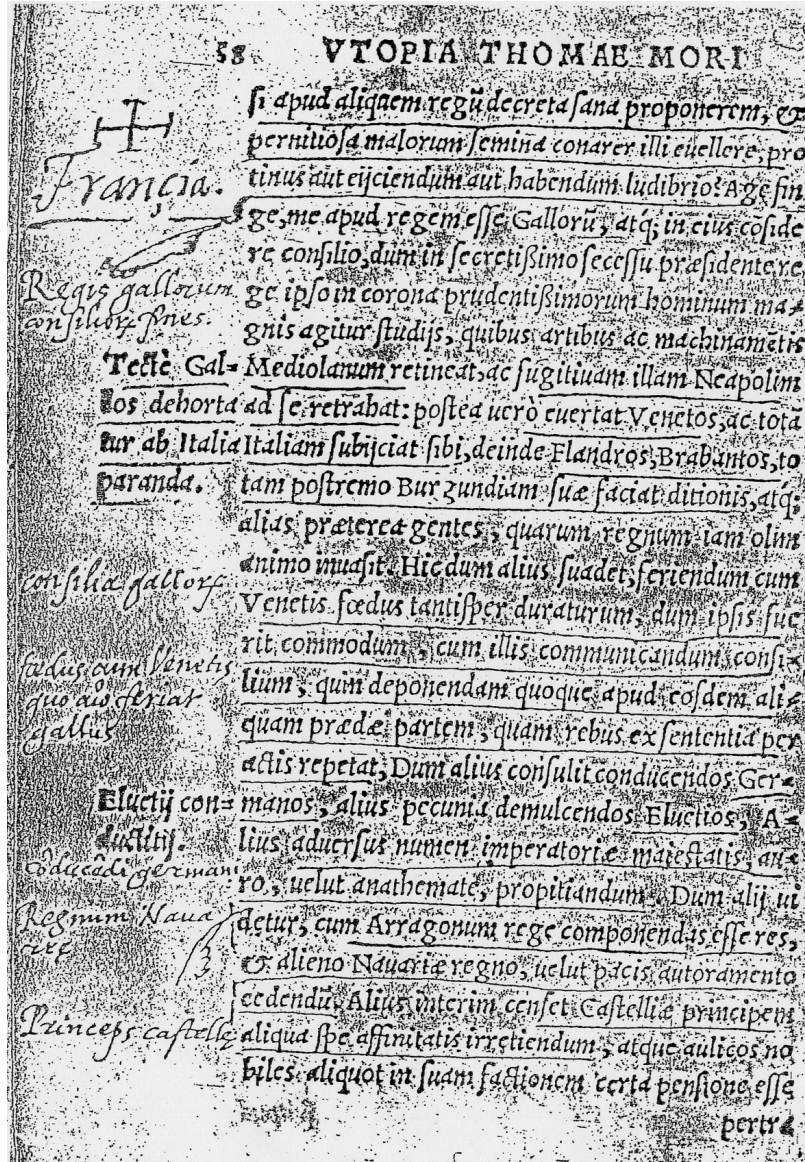 58 VTOPIA THOMAE MORI
si apud aliquem regū decreta sana proponerem, &
pernitiosa malorum semina conarer illi euellere, pro
tinus aut eijciendum aut habendum ludibrio? Age fin
ge, me apud regem esse Gallorū, atq; in eius cōside
re consilio, dum in secretißimo secessu præsidente re
ge ipso in corona prudentißimorum hominum ma-
gnis agitur studijs, quibus artibus ac machinamētis
Mediolanum retineat, ac fugitiuam illam Neapolim
ad se retrahat: postea uerò euertat Venetos, ac totā
Italiam subijciat sibi, deinde Flandros, Brabantos, to
tam postremo Burgundiam suæ faciat ditionis, atq;
alias præterea gentes, quarum regnum iam olim
animo inuasit. Hic dum alius suadet, feriendum cum
Venetis fœdus tantisper duraturum, dum ipsis fue
rit commodum, cum illis communicandum consi-
lium, quin deponendam quoque apud eosdem ali-
quam prædæ partem, quam rebus ex sententia per
actis repetat, Dum alius consulit conducendos Ger-
manos, alius pecunia demulcendos Eluetios, A-
lius aduersus numen imperatoriæ maiestatis, au-
ro, uelut anathemate, propitiandum. Dum alij ui
detur, cum Arragonum rege componendas esse res,
& alieno Nauariæ regno, uelut pacis autoramento
cedendū. Alius interim censet Castelliæ principem
aliqua spe affinitatis irretiendum, atque aulicos no
biles aliquot in suam factionem certa pensione esse
pertra
Francia.
Regis gallorum
fines.
Tectè Gal-
los dehorta
tur ab Italia
paranda.
consilia
fœdus cum Venetis
quo feriat
gallus
Eluetij con-
ductitij.
cōducēdi german
Regnum Naua
Princeps castellę